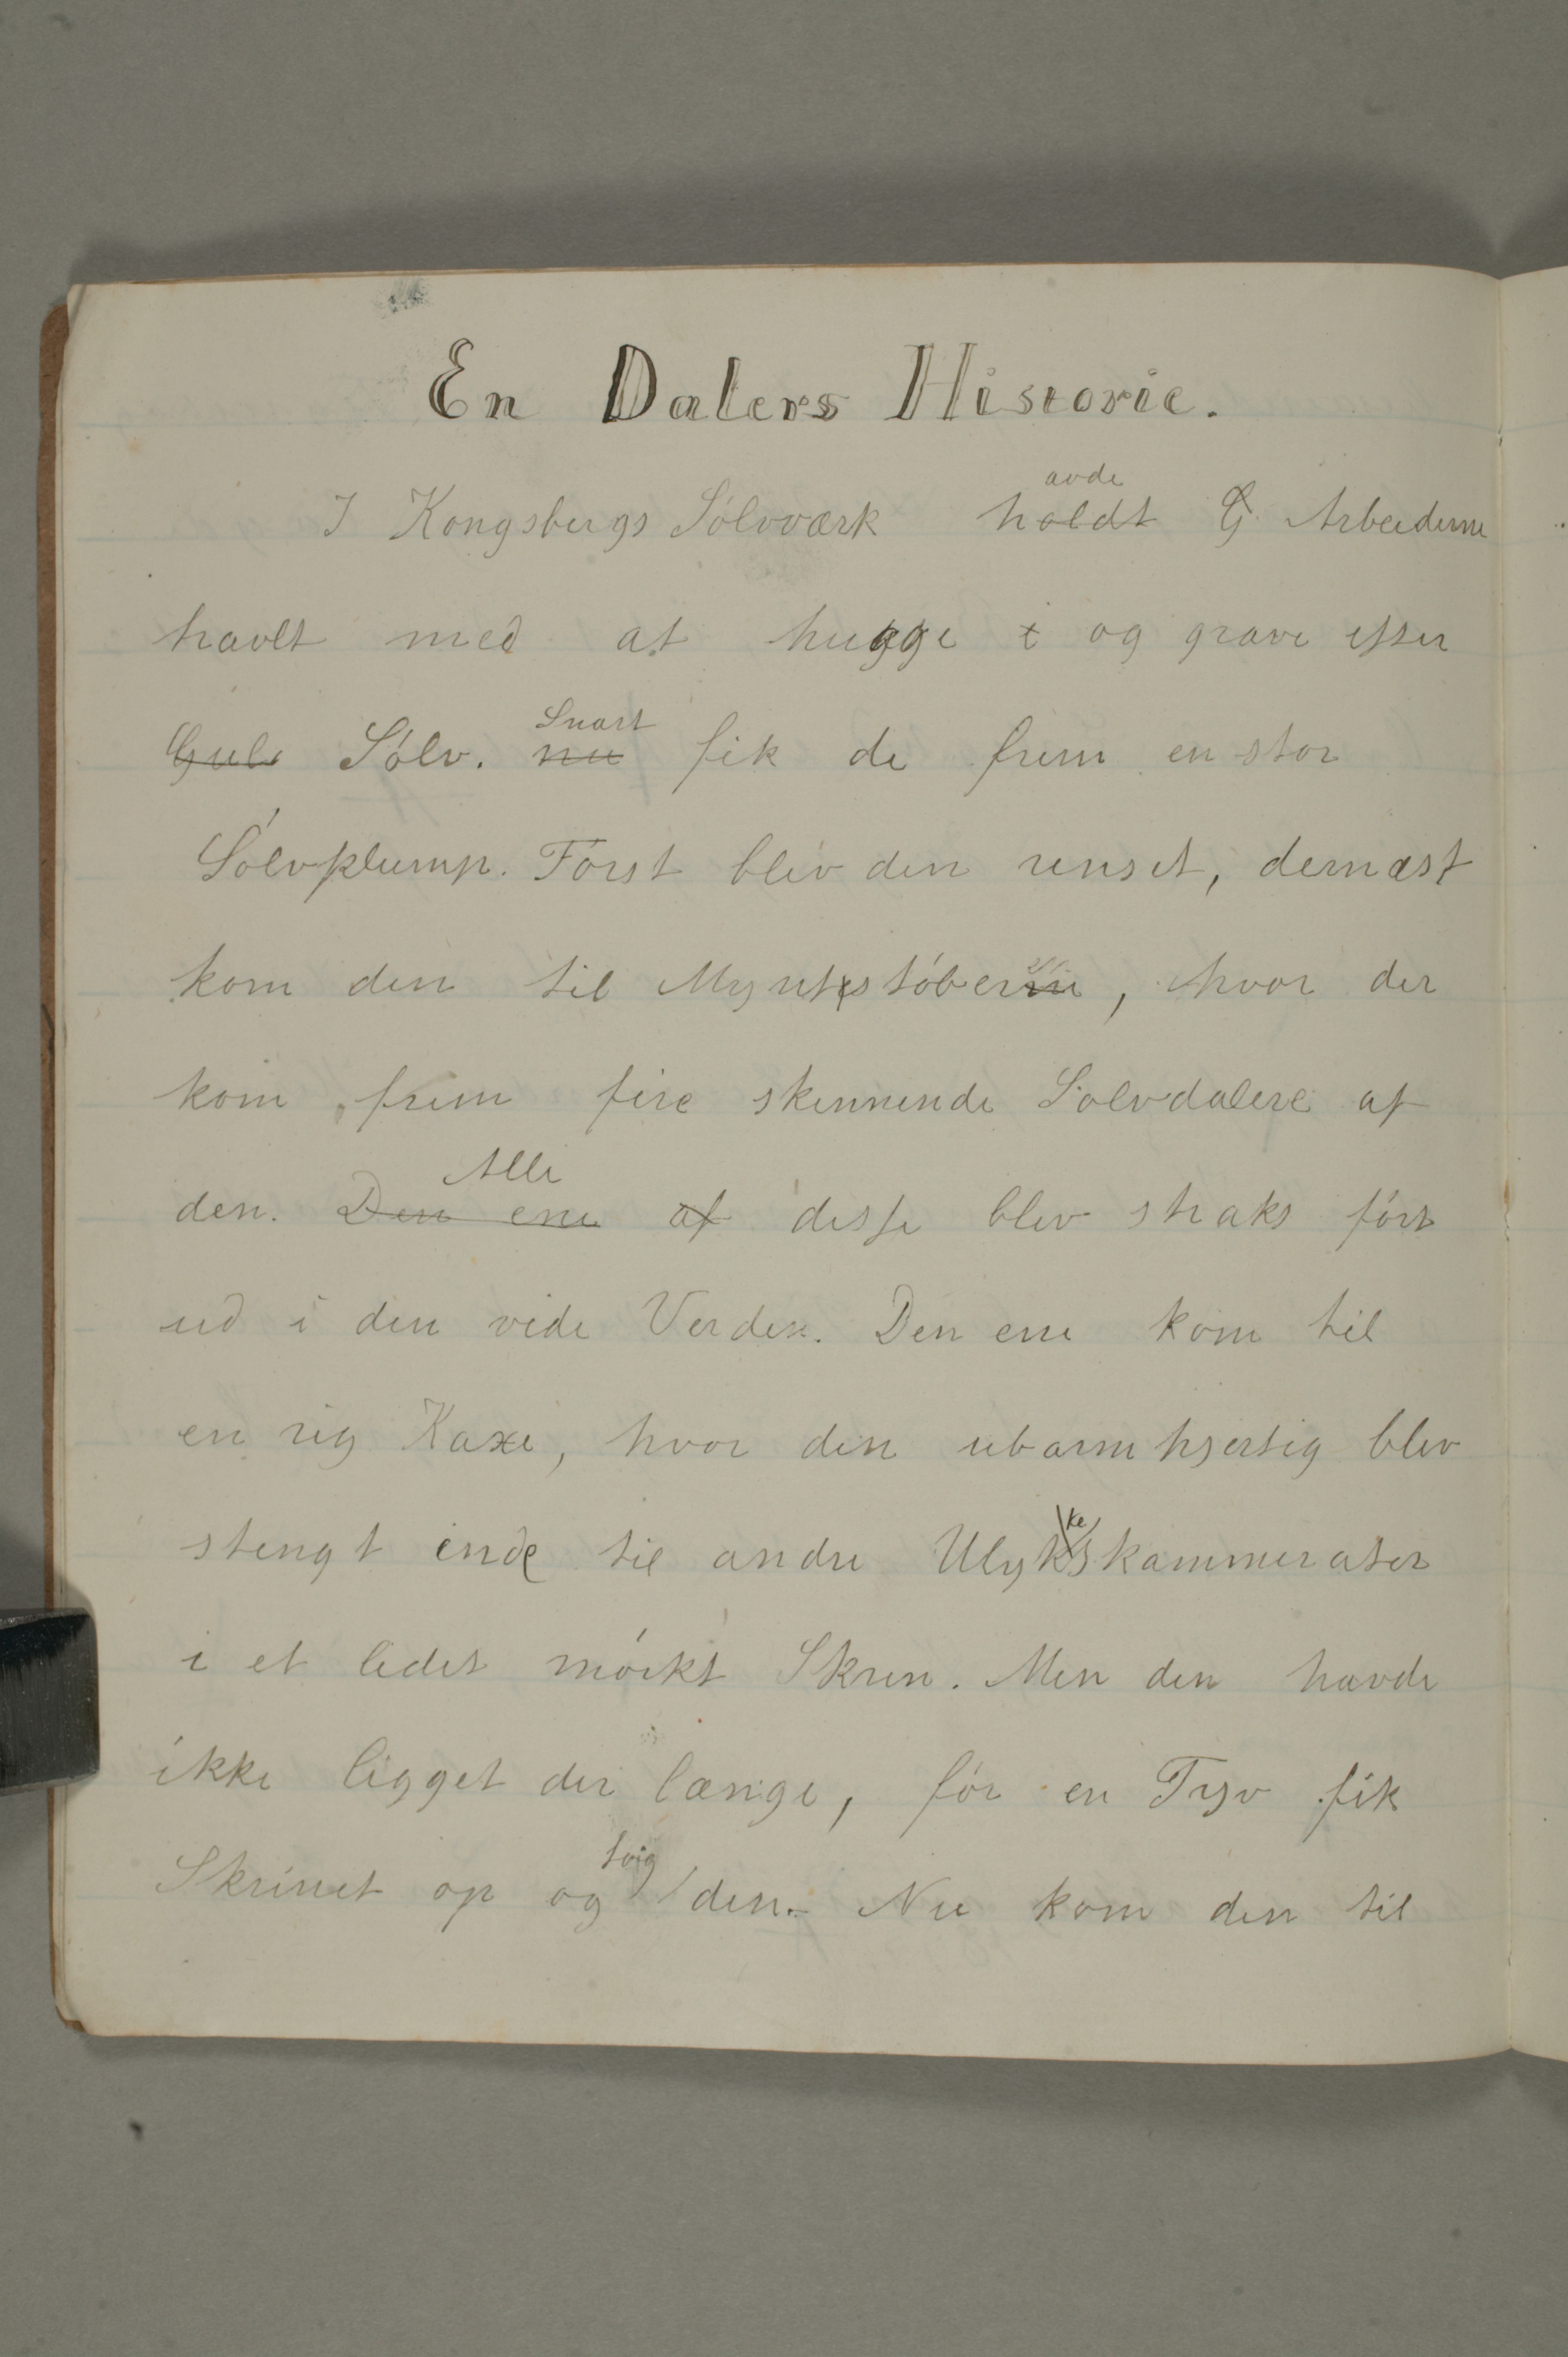 En Dalers Historie.
avde
I Kongsbergs Sólvværk holdt G Arbeiderne
travlt med at hugge i og grave efter
Snart
Gul Sólv. nu fik de frem en stor
Sólvklump. Fórst blev den renset, dernæst
kom den til Myntstóberiie, hvor der
kom frem fire skinnende Sólvdalere af
Alle
den. Den ene af disse blev straks fórt
ud i den vide Verden. Den ene kom til
en rig Kaxe, hvor den ubarmhjertig blev
ke
stengt inde til andre Ulykskammerater
i et lidet mórkt Skrin. Men den havde
ikke ligget der længe, fór en Tyv fik
tog
Skrinet op og den. Nu kom den til